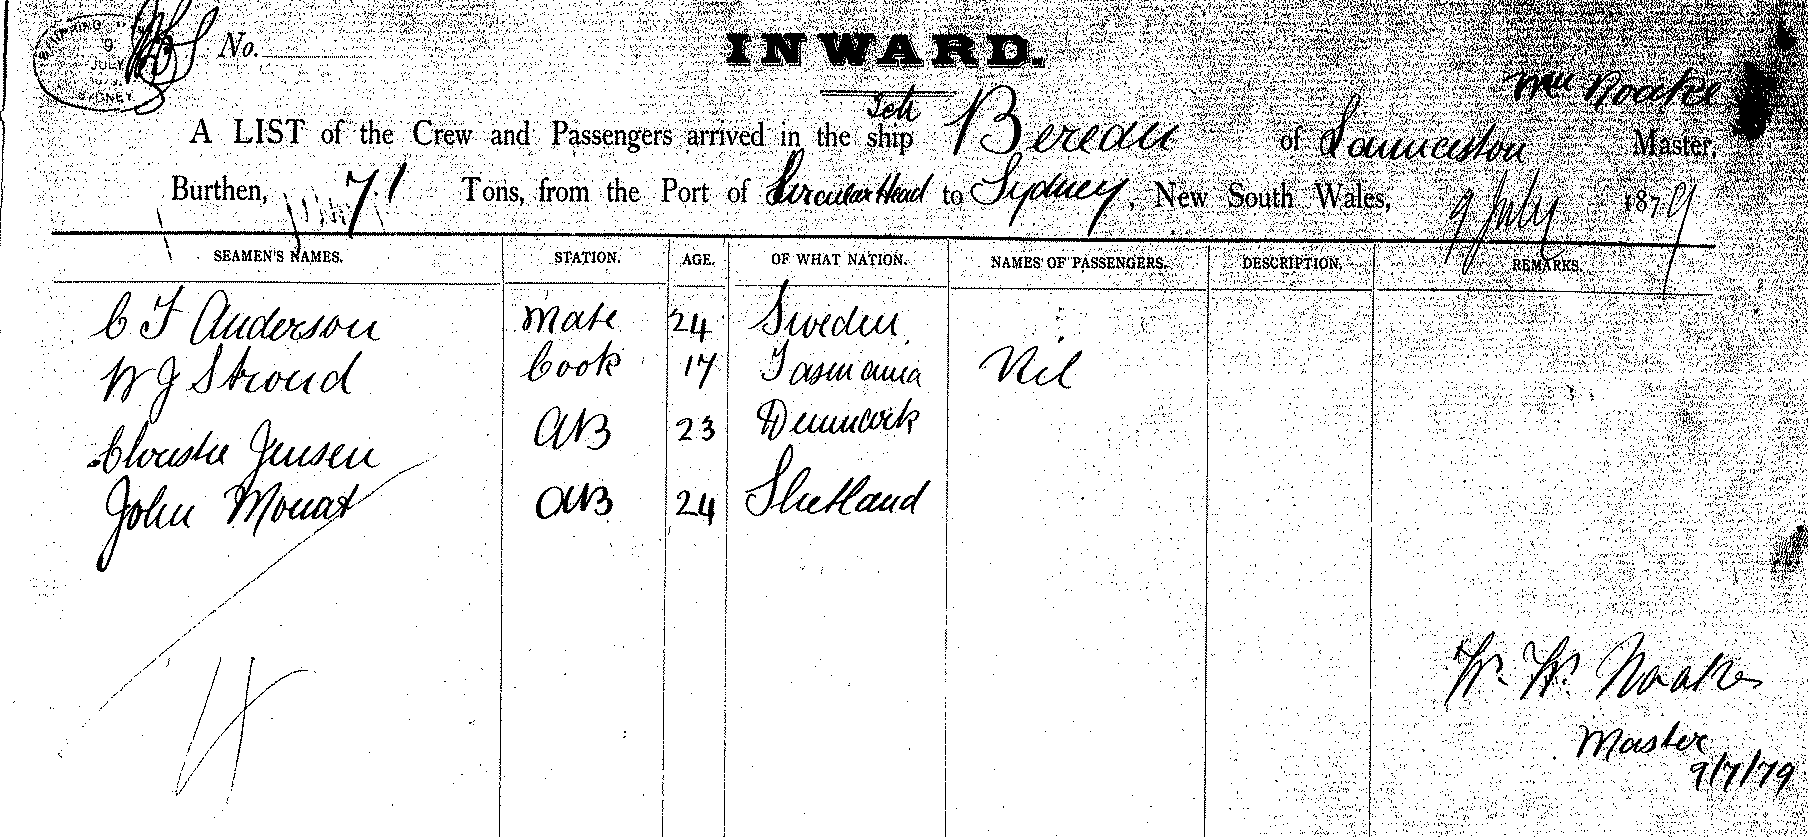 SHIPPING
9
JULY
SYDNEY
No.
INWARD.
Wm Noake
Sch
A LIST of the Crew and Passengers arrived in the ship Bereau of Launceston Master,
Burthen, 71 Tons, from the Port of Circular Head to Sydney, New South Wales, 9 July 1879
SEAMEN'S NAMES. STATION. AGE. OF WHAT NATION. NAMES OF PASSENGERS. DESCRIPTION. REMARKS.
C F Anderson Mate 24 Sweden
W J Stroud Cook 17 Tasmania Nil
Christie Jensen AB 23 Denmark
John Mouat AB 24 Shetland
W. W. Noake
Master
9/7/79